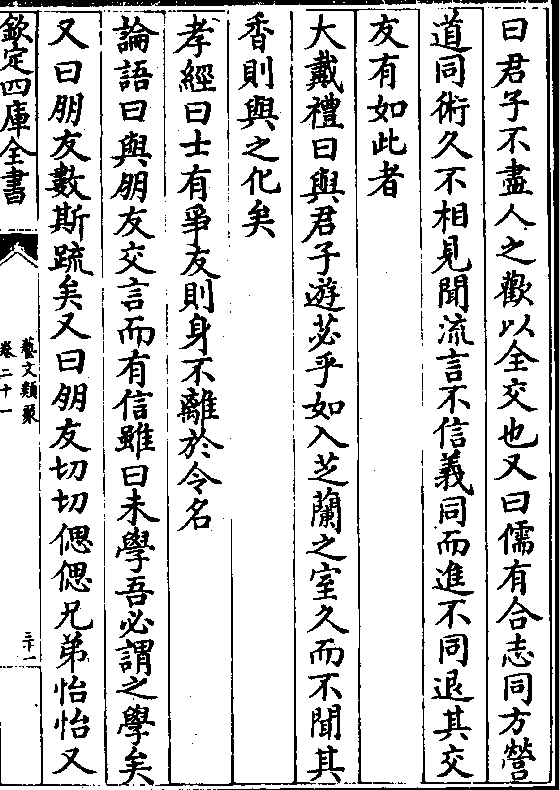 曰君子不盡人之歡以全交也又曰儒有合志同方營
道同術久不相見聞流言不信義同而進不同退其交
友有如此者
大戴禮曰與君子遊苾乎如入芝蘭之室久而不聞其
香則與之化矣
孝經曰士有爭友則身不離於令名
論語曰與朋友交言而有信雖曰未學吾必謂之學矣
又曰朋友數斯疏矣又曰朋友切切偲偲兄弟怡怡又
欽定四庫全書
藝文類聚
卷二十一
三十一